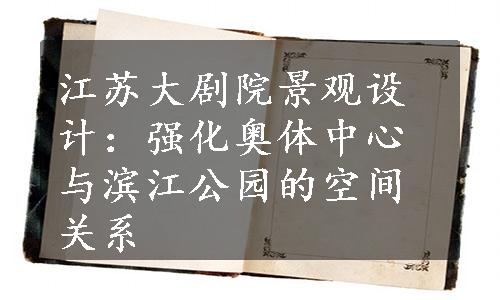 江苏大剧院景观设
计：强化奥体中心
与滨江公园的空间
关系